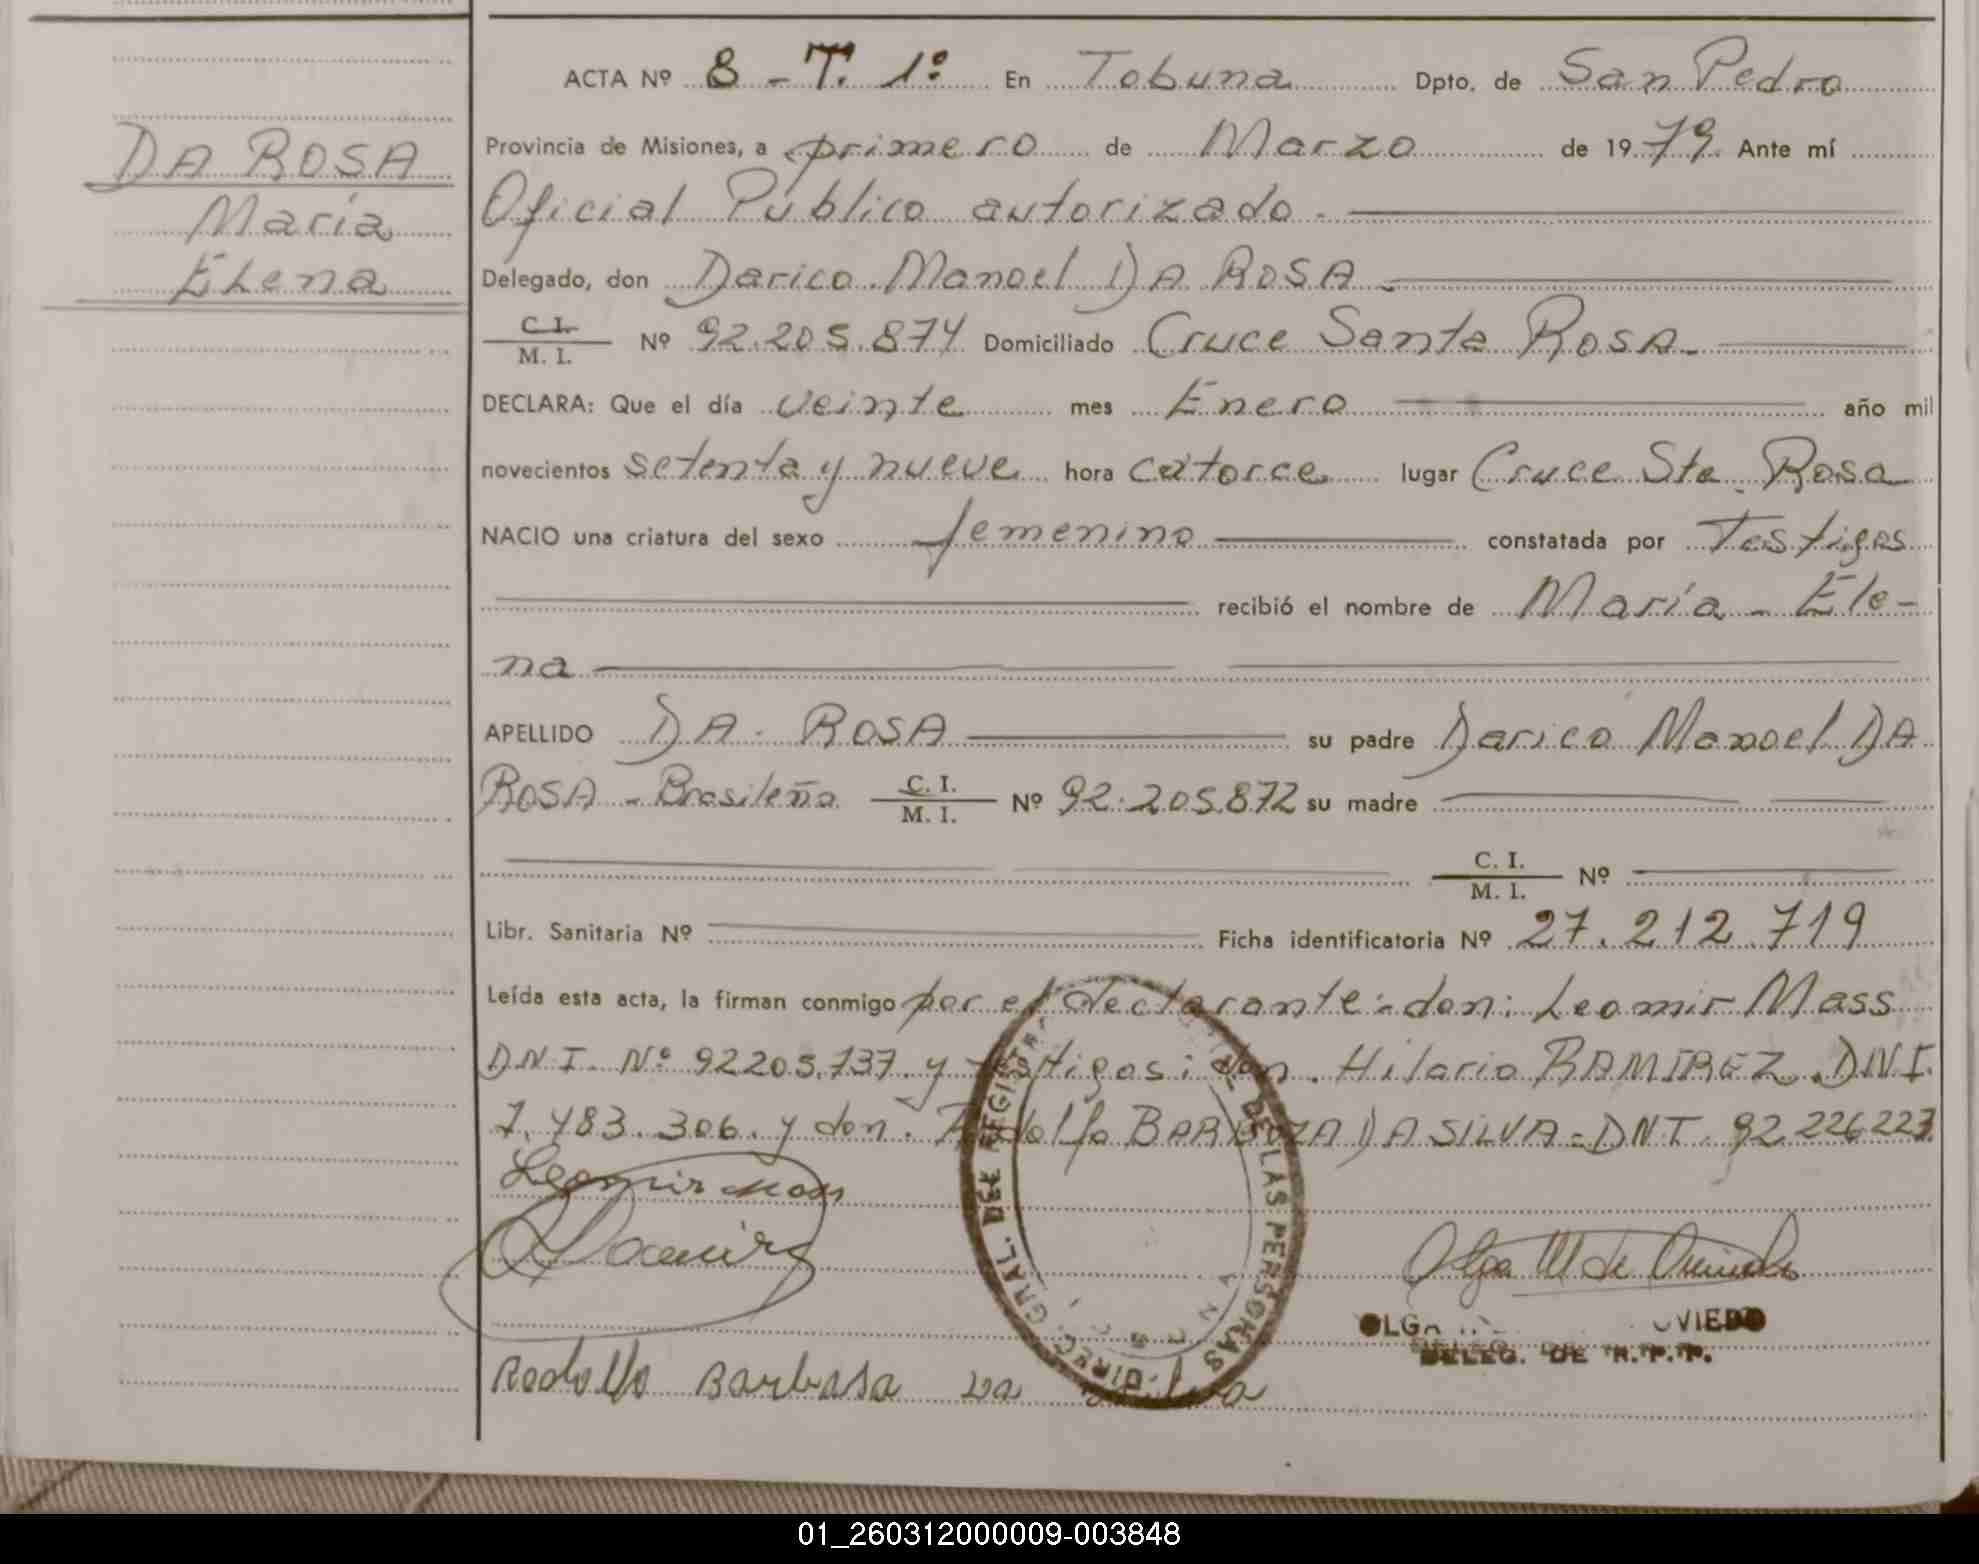 DA ROSA
María
Elena
ACTA Nº 8 - T. 1º En Tobuna Dpto. de San Pedro
Provincia de Misiones, a primero de Marzo de 1979. Ante mí
Oficial Público autorizado.
Delegado, don Darico Manoel DA ROSA
C. I. / M. I. Nº 92.205.874 Domiciliado Cruce Santa ROSA.
DECLARA: Que el día veinte mes Enero año mil
novecientos setenta y nueve hora catorce lugar Cruce Sta. Rosa
NACIO una criatura del sexo femenino constatada por Testigos
recibió el nombre de María - Ele-
na
APELLIDO DA ROSA su padre Darico Manoel DA
ROSA - Brasileño C. I. / M. I. Nº 92.205.872 su madre
C. I. / M. I. Nº
Libr. Sanitaria Nº Ficha identificatoria Nº 27.212.719
Leída esta acta, la firman conmigo por el declarante: don: Leomir Mass
D.N.I. Nº 92205.737. y testigos: don. Hilario RAMIREZ. D.N.I.
7.483.306. y don. Rodolfo BARBOZA DA SILVA - DNI. 92.226223
Leomir Mass
Ramirez
DIREC. GRAL. DEL REGISTRO DE LAS PERSONAS
Olga M de Oviedo
OLGA OVIEDO
DELEG. DE R.P.P.
Rodolfo Barbosa Da Silva
01_260312000009-003848